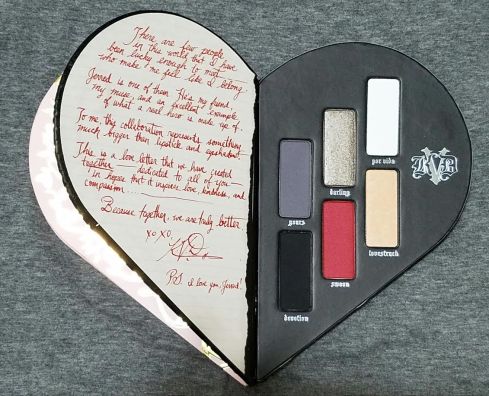 There are few people
in this world that I have
been lucky enough to meet
who make me feel like I belong.
Jerrod is one of them. He's my friend,
my muse, and an excellent example
of what a real hero is made up of.
To me, this collaboration represents something
much bigger than lipstick and eyeshadow.
This is a love letter that we have created
together dedicated to all of you
in hopes that it inspires love, kindness, and
compassion...
Because together, we are truly better.
xoxo,
PS. I love you, Jerrod!
por vida
darling
yours
lovestruck
swoon
devotion
KVD